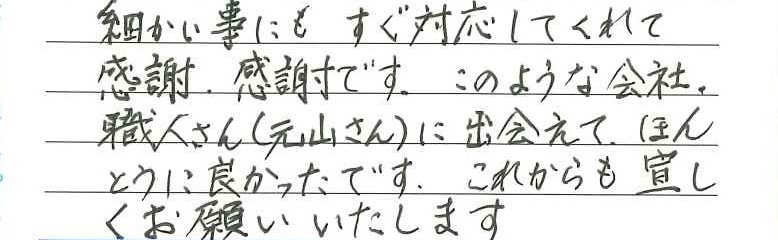 細かい事にも すぐ対応してくれて
感謝．感謝です．このような会社．
職人さん（元山さん）に出会えて．ほん
とうに良かったです．これからも宜し
くお願いいたします